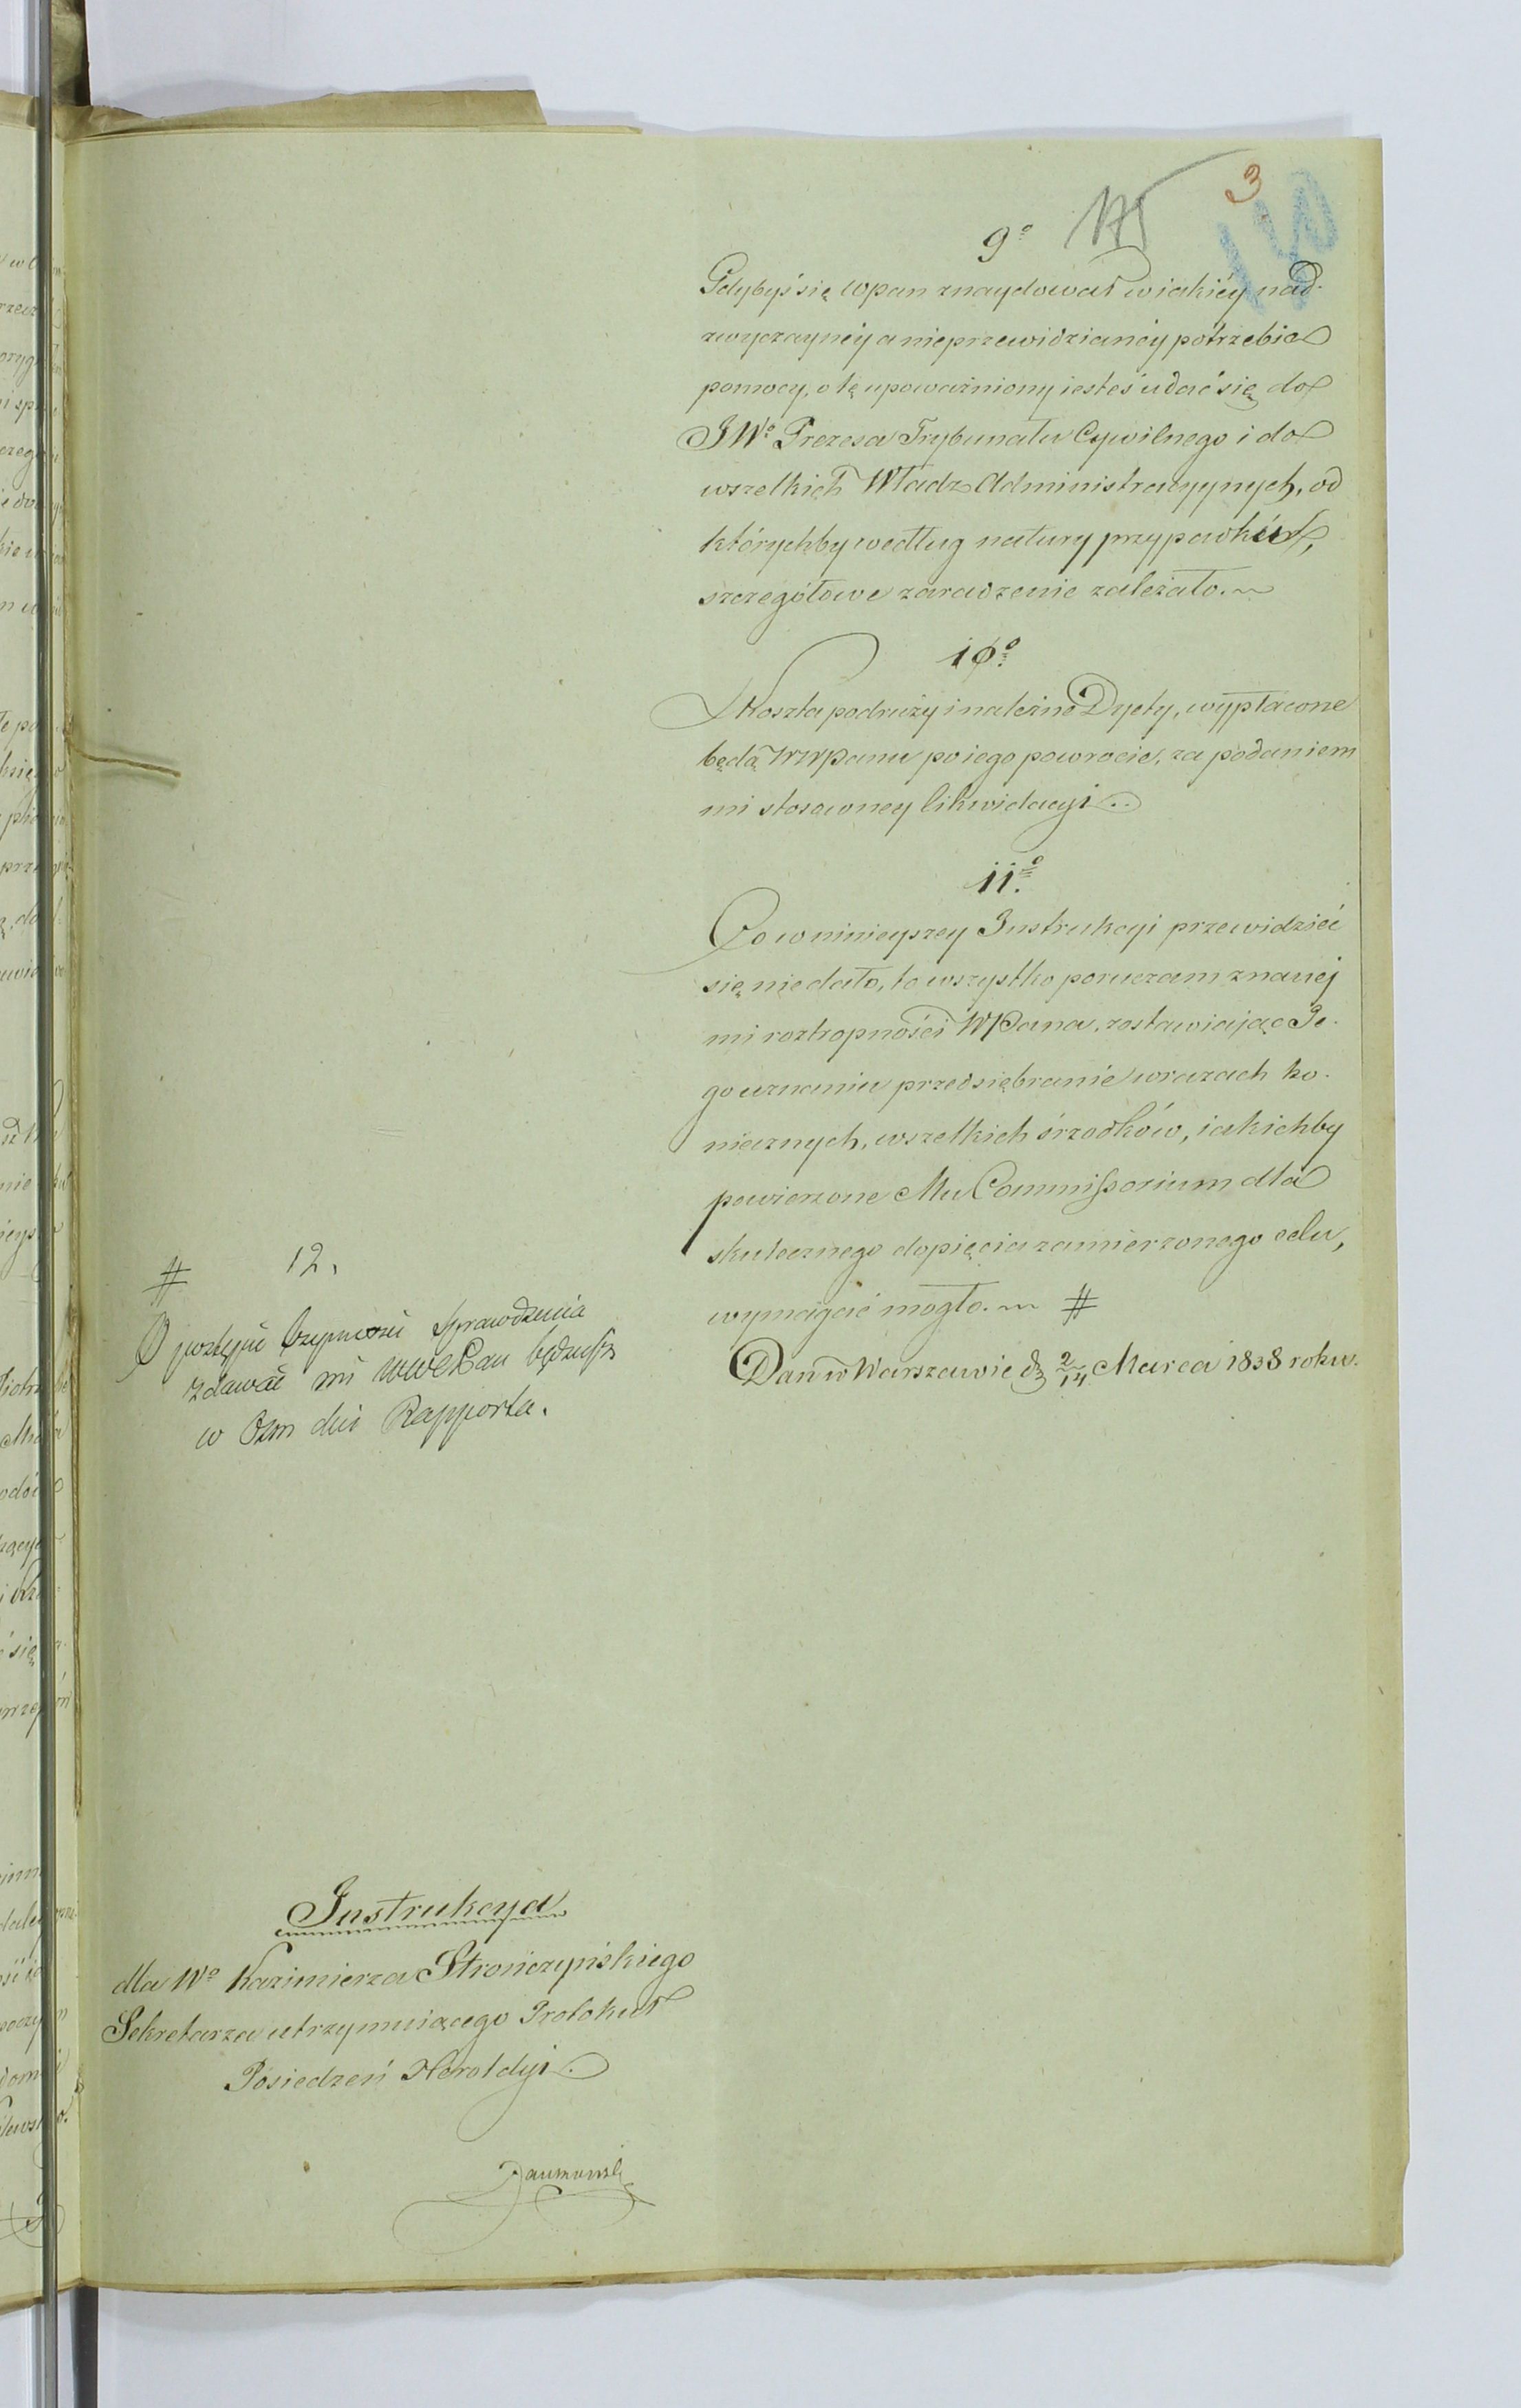 3
9º
Gdybyś się wpan znaydował w iakiéy nad-
zwyczaynéy a nieprzewidzianéy potrzebie
pomocy, o tę upoważniony iesteś udać się do
JWº Prezesa Trybunału Cywilnego i do
wszelkich Władz Administracyynych, od
którychby według natury przypadków,
szczegółowe zaradzenie zależało.
10º
Koszta podróży i należne Dyety, wypłacone
będą WWpanu po iego powrocie, za podaniem
mi stosowney likwidacyi.
11º
Co w ninieyszey Instrukcyi przewidzieć
się nie dało, to wszystko poruczam znanej
mi roztropności WPana, zostawiając Je-
go uznaniu przedsiębranie w razach ko-
niecznych, wszelkich śrzodków, iakichby
powierzone Mu Commissorium dla
skutecznego dopięcia zamierzonego celu,
wymagać mogło. #
Dan w Warszawie d. 2/14 Marca 1838 roku.
# 12.
O postępie Czynności Sprawdzenia
zdawać mi będziesz
w dni Rapporta.
Instrukcya
dla Wº Kazimierza Strończyńskiego
Sekretarza utrzymuiącego Protokuł
Posiedzeń Heroldyi.